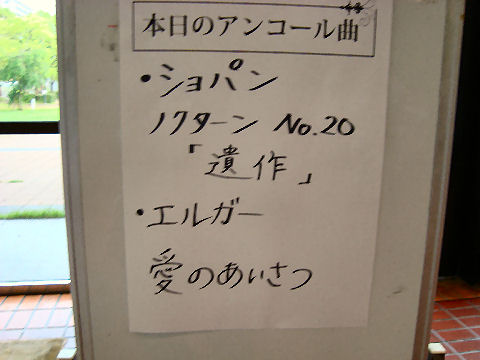 本日のアンコール曲
・ショパン
ノクターン No.20
「遺作」
・エルガー
愛のあいさつ